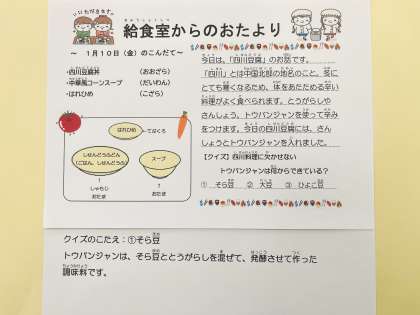 いただきます。
給食室からのおたより
～ 1月10日（金）のこんだて～
・四川豆腐丼 （おおざら）
・中華風コーンスープ （だいわん）
・はれひめ （こざら）
はれひめ ←てぶくろ
しせんどうふどん
（ごはん、しせんどうふ）
スープ
↑
しゃもじ
おたま
↑
おたま
今日は、「四川豆腐」のお話です。
「四川」とは中国北部の地名のこと。冬に
とても寒くなるため、体をあたためる辛い
料理がよく食べられます。とうがらしや
さんしょう、トウバンジャンを使って辛み
をつけます。今日の四川豆腐には、さん
しょうとトウバンジャンを入れました。
【クイズ】四川料理に欠かせない
トウバンジャンは何からできている？
① そら豆 ② 大豆 ③ ひよこ豆
クイズのこたえ：①そら豆
トウバンジャンは、そら豆ととうがらしを混ぜて、発酵させて作った
調味料です。